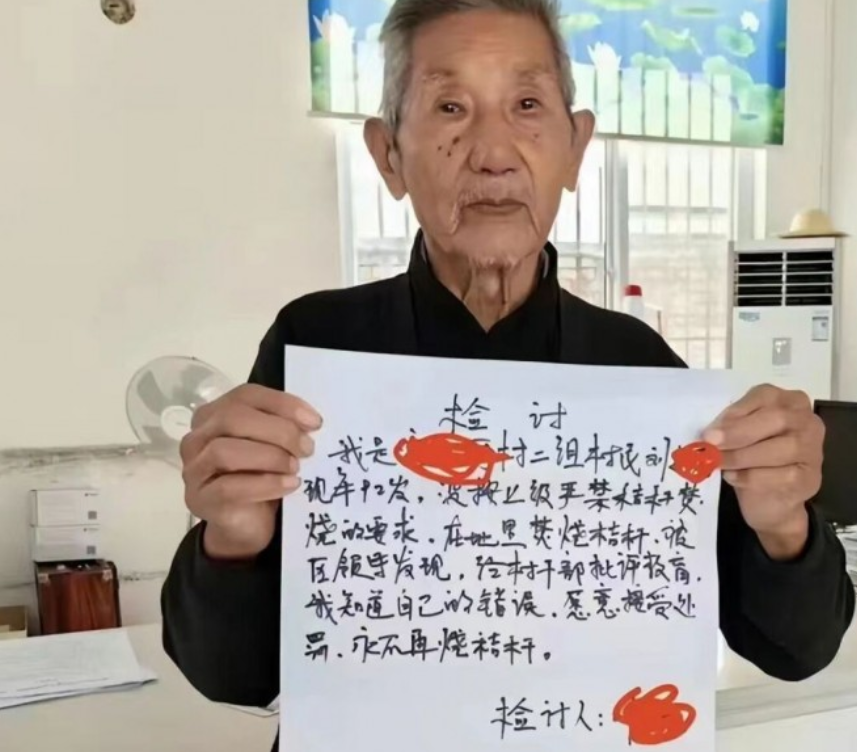 检讨
我是村二组村民刘
现年92岁，没按上级严禁秸秆焚
烧的要求，在地里焚烧秸秆，被
区领导发现，给村干部批评教育，
我知道自己的错误，愿意接受处
罚，永不再烧秸秆。
检讨人：